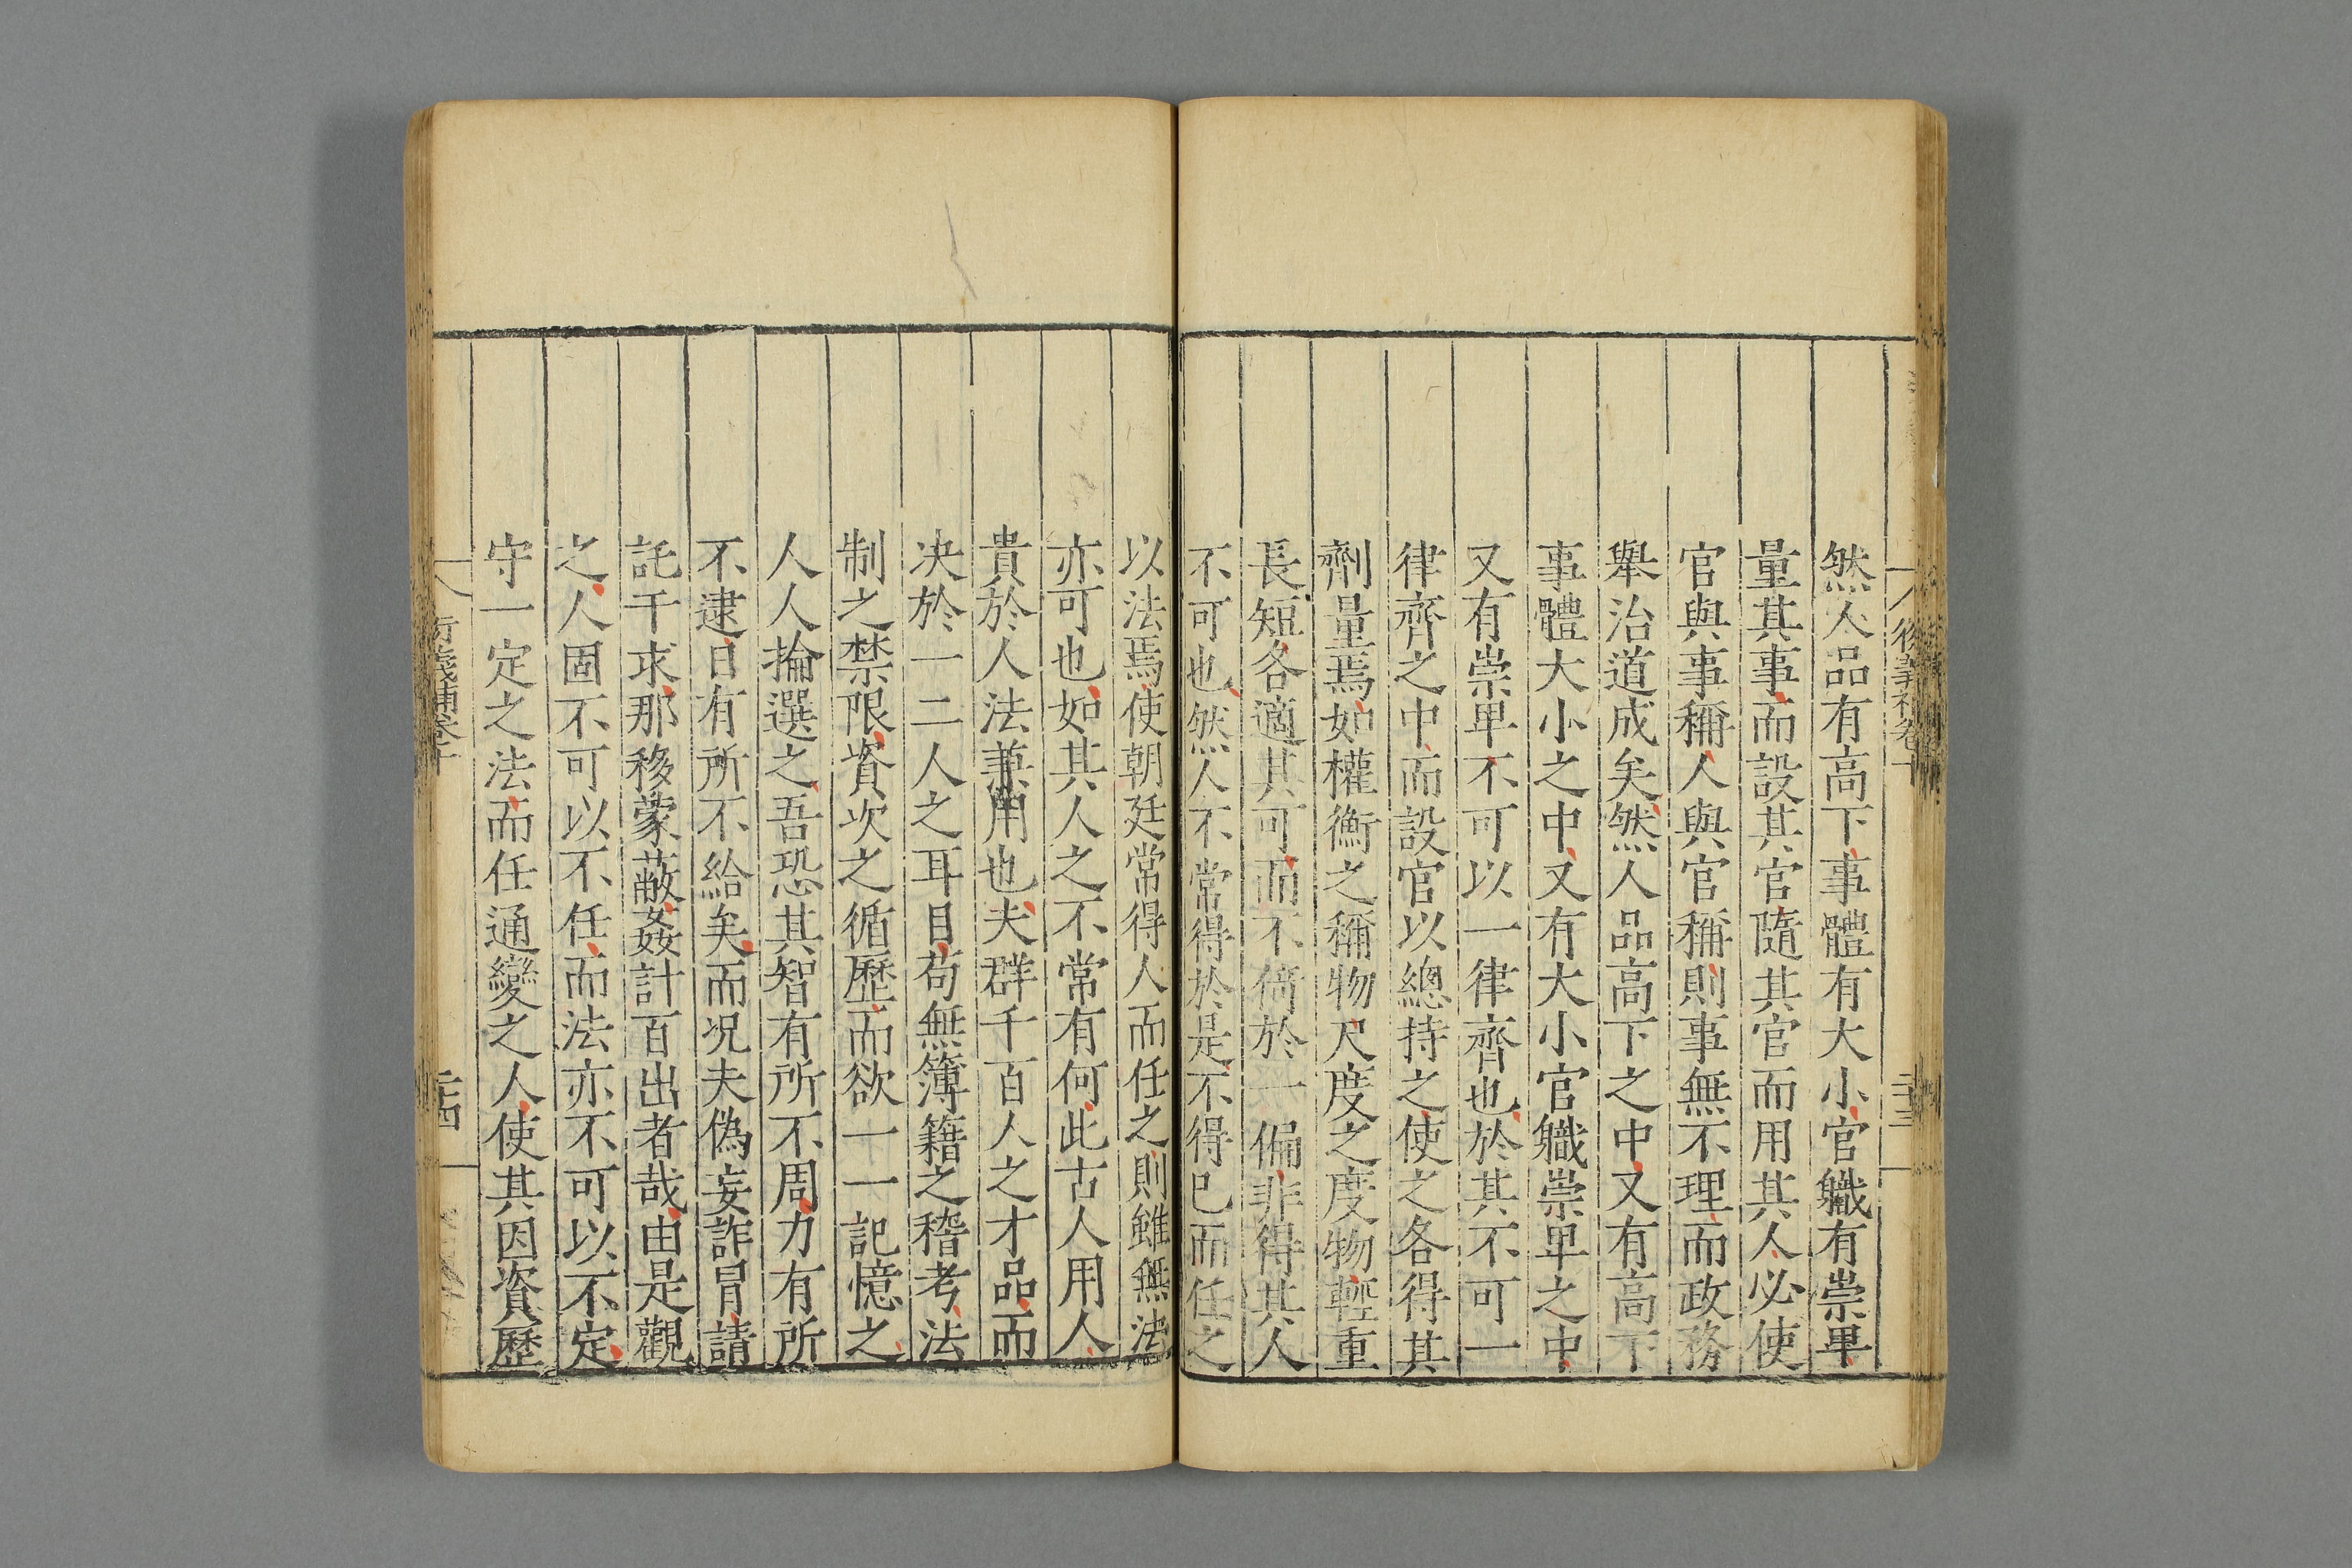 然人品有高下事體有大小官職有崇卑
量其事而設其官隨其官而用其人必使
官與事稱人與官稱則事無不理而政務
舉治道成矣然人品高下之中又有高下
事體大小之中又有大小官職崇卑之中
又有崇卑不可以一律齊也於其不可一
律齊之中而設官以總持之使之各得其
劑量焉如權衡之稱物尺度之度物輕重
長短各適其可而不倚於一偏非得其人
不可也然人不常得於是不得已而任之
以法焉使朝廷常得人而任之則雖無法
亦可也如其人之不常有何此古人用人
貴於人法兼用也夫群千百人之才品而
决於一二人之耳目苟無簿籍之稽考法
制之禁限資次之循歷而欲一一記憶之
人人掄選之吾恐其智有所不周力有所
不逮日有所不給矣而况夫偽妄詐冐請
託干求那移蒙蔽姦計百出者哉由是觀
之人固不可以不任而法亦不可以不定
守一定之法而任通變之人使其因資歷
衍義補卷十
二十四